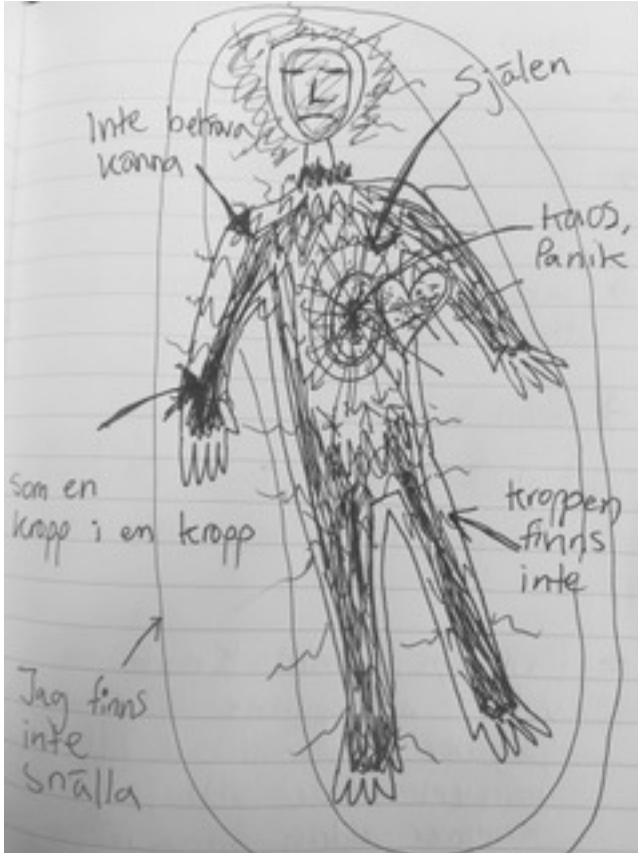 Själen
Inte behöva
känna
kaos,
Panik
som en
kropp i en kropp
kroppen
finns
inte
Jag finns
inte
snälla